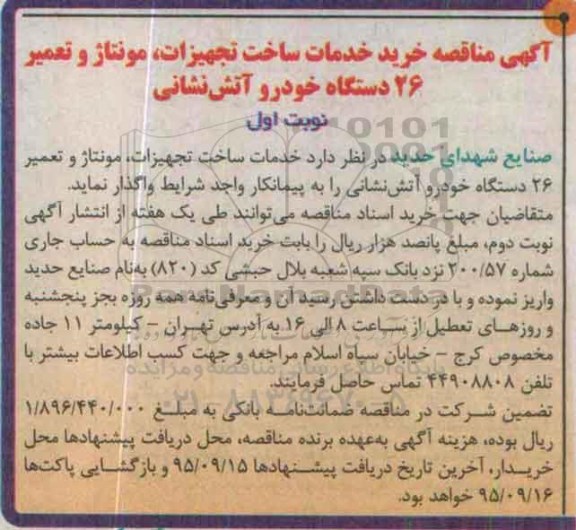 آگهی مناقصه خرید خدمات ساخت تجهیزات، مونتاژ و تعمیر
۲۶ دستگاه خودرو آتش‌نشانی
نوبت اول
صنایع شهدای حدید در نظر دارد خدمات ساخت تجهیزات، مونتاژ و تعمیر
۲۶ دستگاه خودرو آتش‌نشانی را به پیمانکار واجد شرایط واگذار نماید.
متقاضیان جهت خرید اسناد مناقصه می‌توانند طی یک هفته از انتشار آگهی
نوبت دوم، مبلغ پانصد هزار ریال را بابت خرید اسناد مناقصه به حساب جاری
شماره ۲۰۰/۵۷ نزد بانک سپه شعبه بلال حبشی کد (۸۲۰) به‌نام صنایع حدید
واریز نموده و با در دست داشتن رسید آن و معرفی‌نامه همه روزه بجز پنجشنبه
و روزهای تعطیل از ساعت ۸ الی ۱۶ به آدرس تهران – کیلومتر ۱۱ جاده
مخصوص کرج – خیابان سپاه اسلام مراجعه و جهت کسب اطلاعات بیشتر با
تلفن ۴۴۹۰۸۸۰۸ تماس حاصل فرمایند.
تضمین شرکت در مناقصه ضمانت‌نامه بانکی به مبلغ ۱/۸۹۶/۴۴۰/۰۰۰
ریال بوده، هزینه آگهی به‌عهده برنده مناقصه، محل دریافت پیشنهادها محل
خریدار، آخرین تاریخ دریافت پیشنهادها ۹۵/۰۹/۱۵ و بازگشایی پاکت‌ها
۹۵/۰۹/۱۶ خواهد بود.